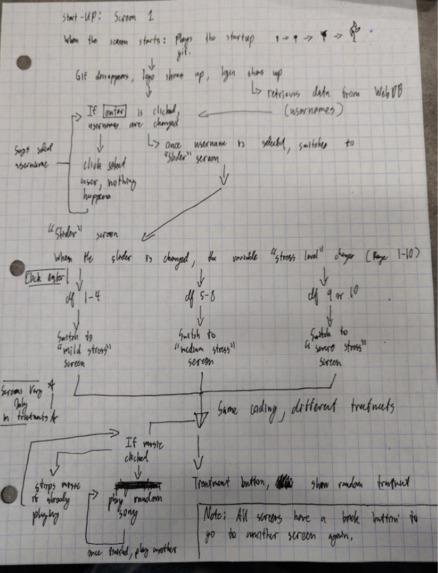 Start-UP: Screen 1
When the screen starts: Plays the startup gif.
Gif disappears, logo shows up, login shows up
retrieves data from WebDB
(usernames)
If enter is clicked,
usernames are changed
Once username is selected, switches to
"Slider" screen
username
click select
user, nothing
happens
"Slider" screen
When the slider is changed, the variable "stress level" changes (Range 1-10)
Click enter
if 1-4
if 5-8
if 9 or 10
Switch to
"mild stress"
screen
Switch to
"medium stress"
screen
Switch to
"severe stress"
screen
Screens Vary
Only
in treatments
Same coding, different treatments
If music
clicked
stops music
if already
playing
play random
song
once finished, play another
Treatment button, show random treatment
Note: All screens have a back button to
go to another screen again.